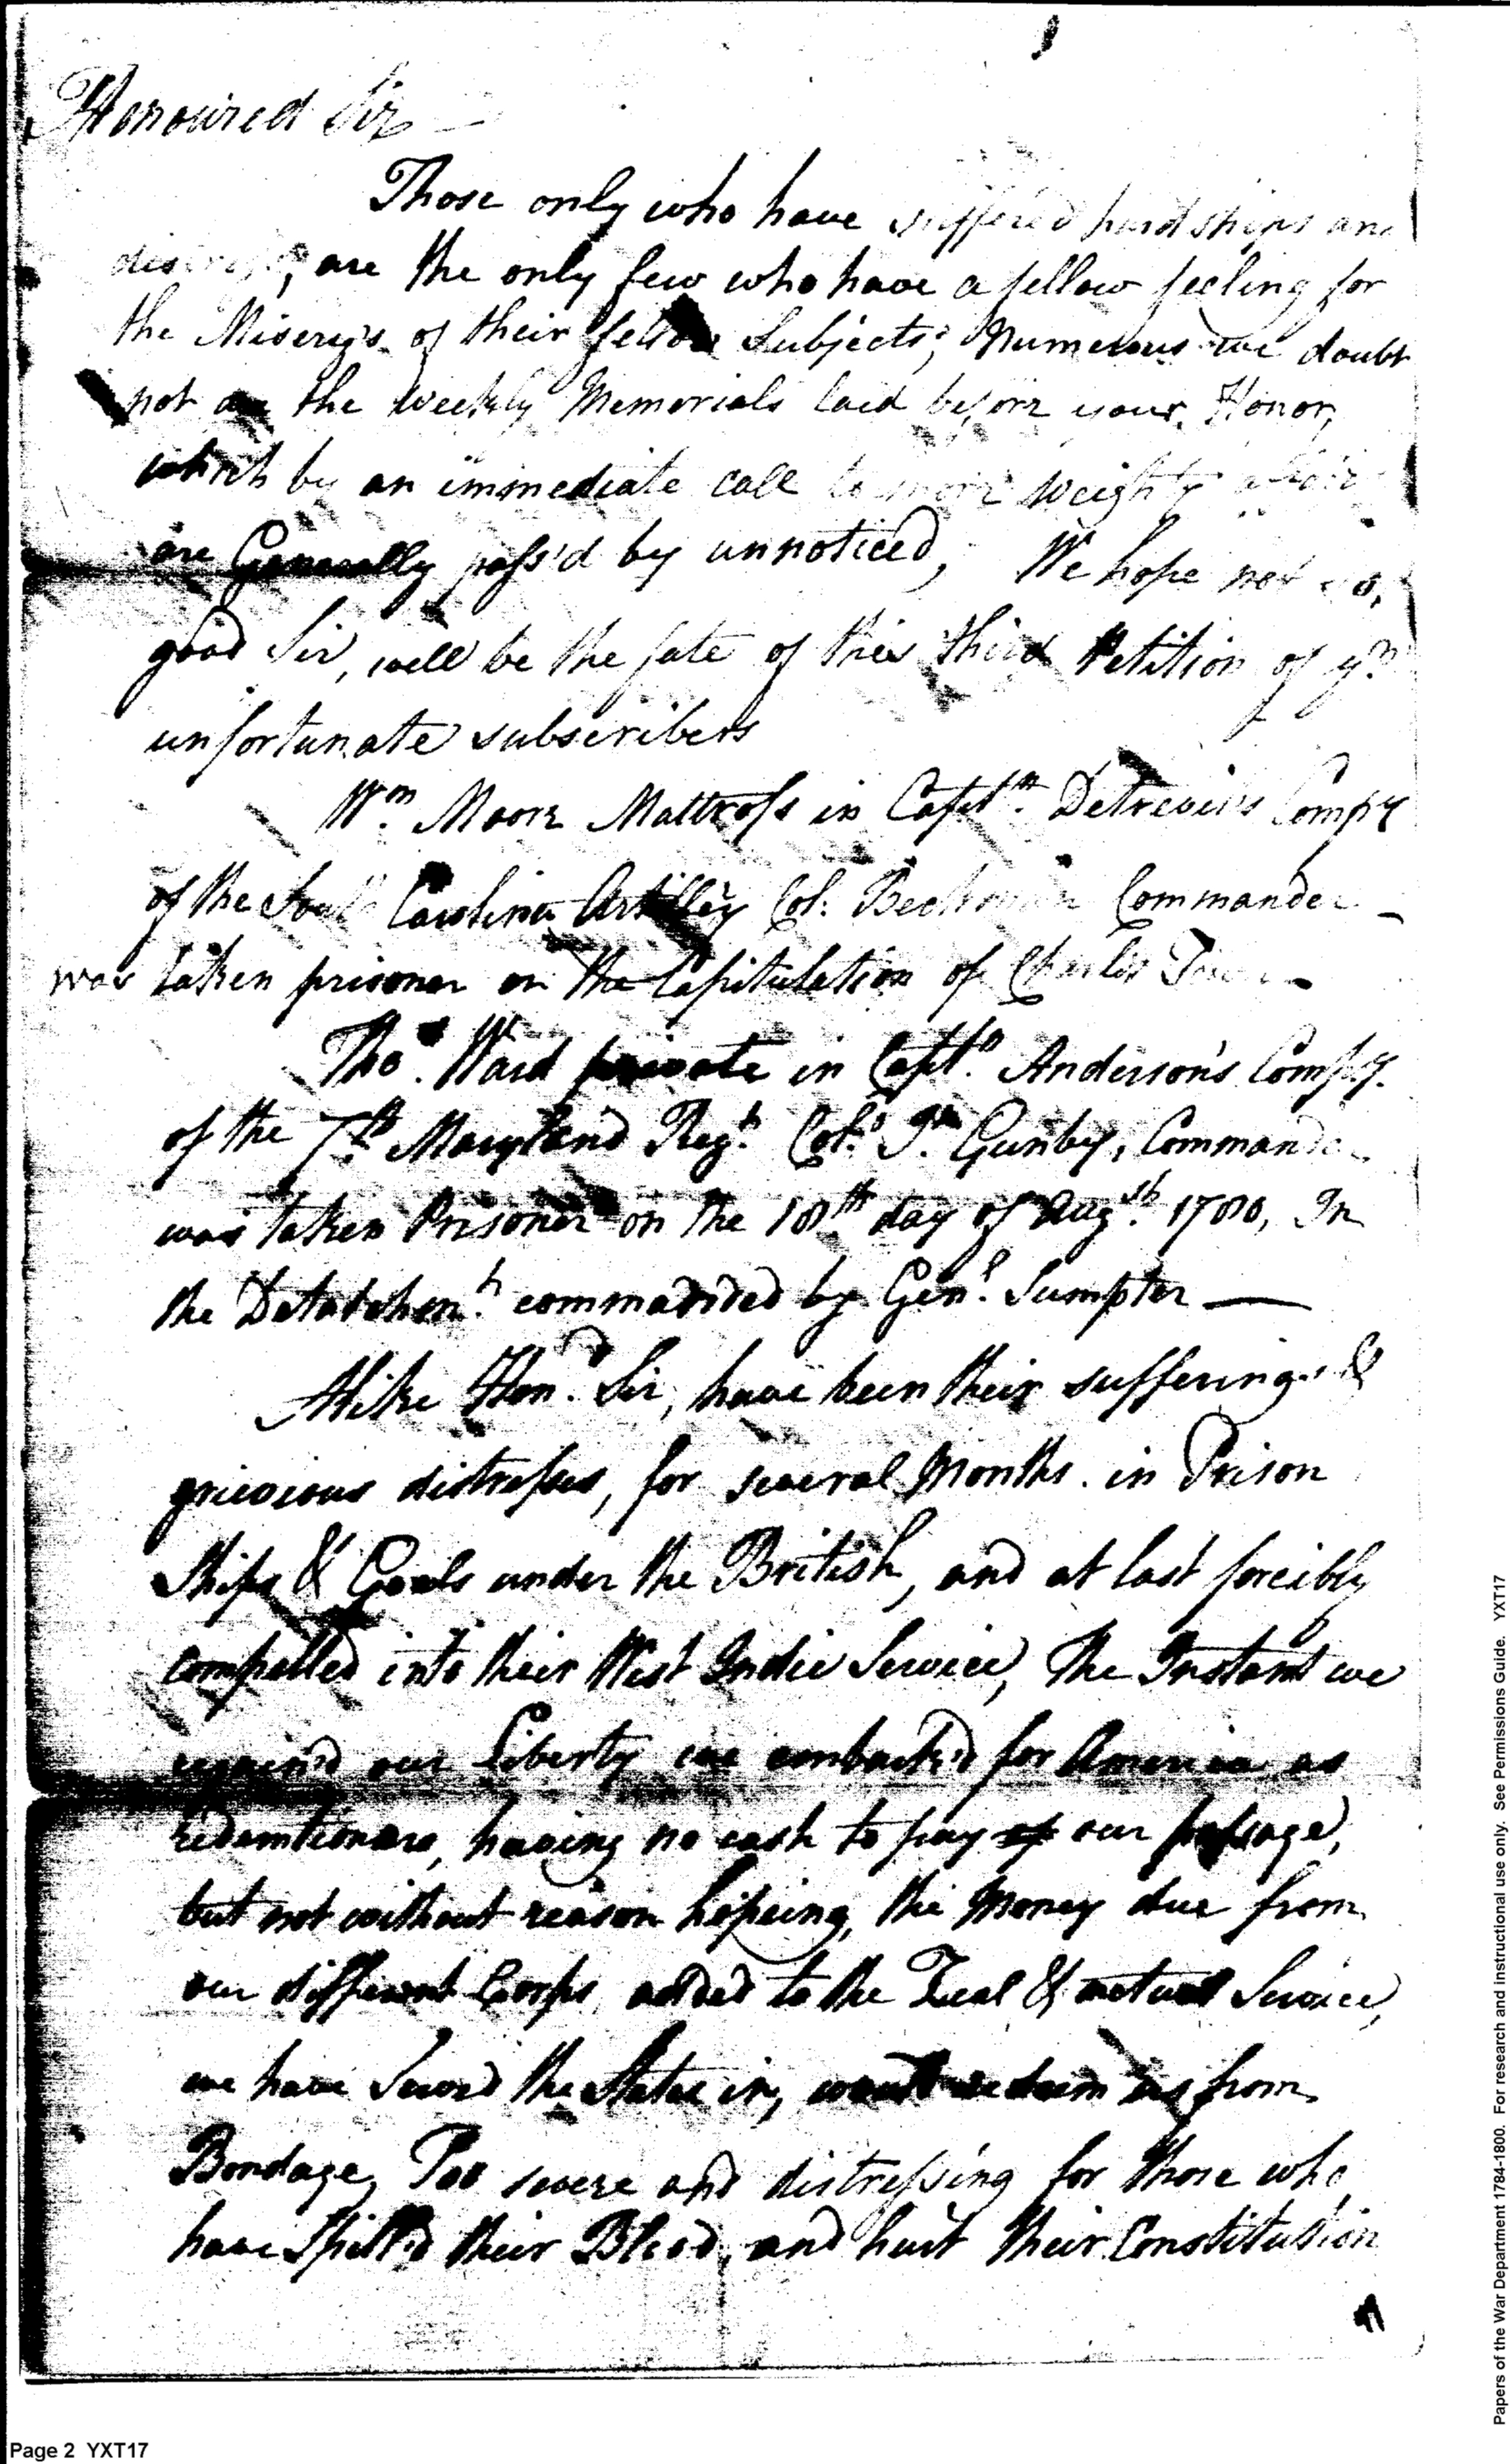 Honoured Sir
Those only who have suffered hardships and
distress, are the only few who have a fellow feeling for
the Misery's of their fellow Subjects; Numerous we doubt
not are the weekly Memorials laid before your Honor,
which by an immediate call to more weighty
are Generally pass'd by unnoticed, We hope not so,
good Sir, will be the fate of this third Petition of yr.
unfortunate subscribers
Wm. Moore Mattross in Captn. Detrevill's Compy
of the South Carolina Artillery Col: Beckman Commander
was taken prisoner on the Capitulation of Charles Town
Thos. Ward private in Captn. Anderson's Compy.
of the 7th Maryland Regt. Col. Jn. Gunby, Commander
was taken Prisoner on the 18th day of Augst. 1780, In
the Detatchmt. commanded by Genl. Sumpter
Alike Hond. Sir, have been their sufferings &
grievious distresses, for several Months in Prison
Ships & Goals under the British, and at last forcibly
compelled into their West Indie Service, The Instant we
regain'd our Liberty we embark'd for America as
redemtioners, having no cash to pay of our passage,
but not without reason hopeing, the Money due from
our different Corps, added to the Zeal & actual Service,
we have Serv'd the States in, would redeem us from
Bondage, Too severe and distressing for those who
have Spill'd their Blood, and hurt their Constitution
Page 2 YXT17
Papers of the War Department 1784-1800. For research and instructional use only. See Permissions Guide. YXT17